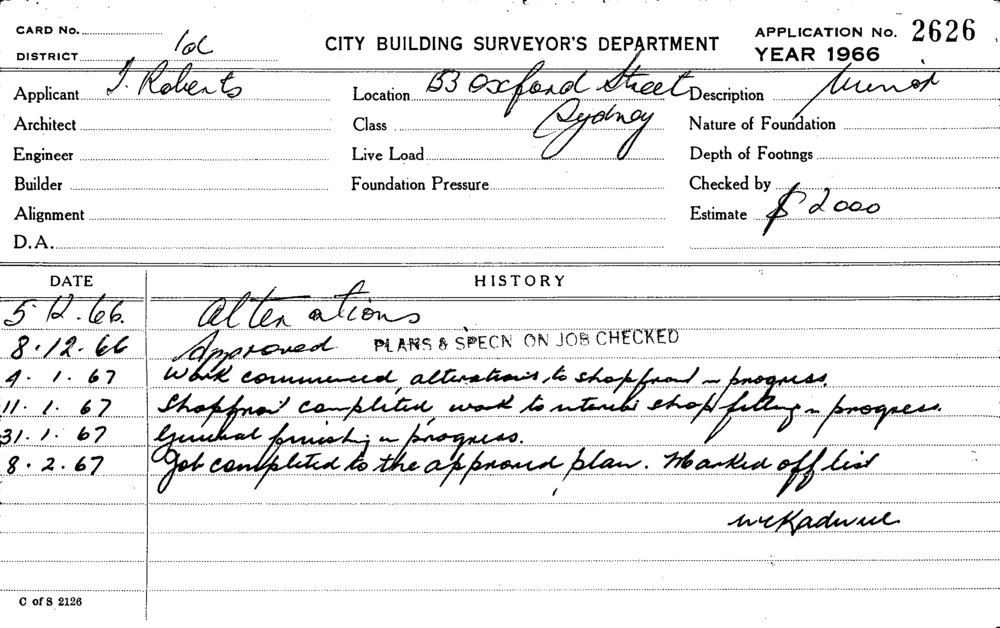 CARD No. APPLICATION No. 2626
DISTRICT 1d CITY BUILDING SURVEYOR'S DEPARTMENT YEAR 1966
Applicant J. Roberts Location 53 Oxford Street Description Minor
Architect Class Sydney Nature of Foundation
Engineer Live Load Depth of Footings
Builder Foundation Pressure Checked by
Alignment Estimate $2000
D.A.
DATE HISTORY
5.12.66. Alterations
8.12.66 Approved PLANS & SPECN ON JOB CHECKED
4.1.67 Work commenced, alterations to shopfront in progress.
11.1.67 Shopfront completed, work to interior shop fitting in progress.
31.1.67 General finishing in progress.
8.2.67 Job completed to the approved plan. Marked off list
C of S 2126